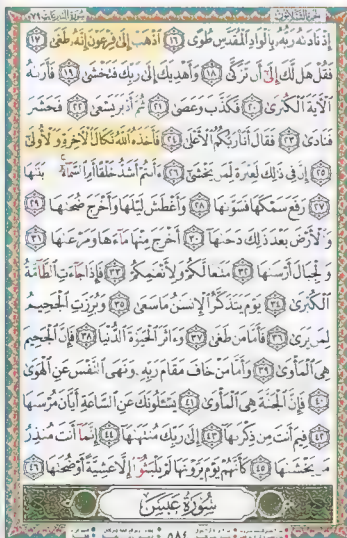 الجزء الثلاثون سورة النازعات ٧٩
إِذْ نَادَىٰهُ رَبُّهُۥ بِٱلْوَادِ ٱلْمُقَدَّسِ طُوًى ١٦ ٱذْهَبْ إِلَىٰ فِرْعَوْنَ إِنَّهُۥ طَغَىٰ ١٧
فَقُلْ هَل لَّكَ إِلَىٰٓ أَن تَزَكَّىٰ ١٨ وَأَهْدِيَكَ إِلَىٰ رَبِّكَ فَتَخْشَىٰ ١٩ فَأَرَىٰهُ
ٱلْـَٔايَةَ ٱلْكُبْرَىٰ ٢٠ فَكَذَّبَ وَعَصَىٰ ٢١ ثُمَّ أَدْبَرَ يَسْعَىٰ ٢٢ فَحَشَرَ
فَنَادَىٰ ٢٣ فَقَالَ أَنَا۠ رَبُّكُمُ ٱلْأَعْلَىٰ ٢٤ فَأَخَذَهُ ٱللَّهُ نَكَالَ ٱلْـَٔاخِرَةِ وَٱلْأُولَىٰٓ
٢٥ إِنَّ فِى ذَٰلِكَ لَعِبْرَةً لِّمَن يَخْشَىٰٓ ٢٦ ءَأَنتُمْ أَشَدُّ خَلْقًا أَمِ ٱلسَّمَآءُ ۚ بَنَىٰهَا
٢٧ رَفَعَ سَمْكَهَا فَسَوَّىٰهَا ٢٨ وَأَغْطَشَ لَيْلَهَا وَأَخْرَجَ ضُحَىٰهَا ٢٩
وَٱلْأَرْضَ بَعْدَ ذَٰلِكَ دَحَىٰهَآ ٣٠ أَخْرَجَ مِنْهَا مَآءَهَا وَمَرْعَىٰهَا ٣١
وَٱلْجِبَالَ أَرْسَىٰهَا ٣٢ مَتَٰعًا لَّكُمْ وَلِأَنْعَٰمِكُمْ ٣٣ فَإِذَا جَآءَتِ ٱلطَّآمَّةُ
ٱلْكُبْرَىٰ ٣٤ يَوْمَ يَتَذَكَّرُ ٱلْإِنسَٰنُ مَا سَعَىٰ ٣٥ وَبُرِّزَتِ ٱلْجَحِيمُ
لِمَن يَرَىٰ ٣٦ فَأَمَّا مَن طَغَىٰ ٣٧ وَءَاثَرَ ٱلْحَيَوٰةَ ٱلدُّنْيَا ٣٨ فَإِنَّ ٱلْجَحِيمَ
هِىَ ٱلْمَأْوَىٰ ٣٩ وَأَمَّا مَنْ خَافَ مَقَامَ رَبِّهِۦ وَنَهَى ٱلنَّفْسَ عَنِ ٱلْهَوَىٰ
٤٠ فَإِنَّ ٱلْجَنَّةَ هِىَ ٱلْمَأْوَىٰ ٤١ يَسْـَٔلُونَكَ عَنِ ٱلسَّاعَةِ أَيَّانَ مُرْسَىٰهَا
٤٢ فِيمَ أَنتَ مِن ذِكْرَىٰهَآ ٤٣ إِلَىٰ رَبِّكَ مُنتَهَىٰهَآ ٤٤ إِنَّمَآ أَنتَ مُنذِرُ
مَن يَخْشَىٰهَا ٤٥ كَأَنَّهُمْ يَوْمَ يَرَوْنَهَا لَمْ يَلْبَثُوٓا۟ إِلَّا عَشِيَّةً أَوْ ضُحَىٰهَا ٤٦
سُورَةُ عَبَسَ
٥٨٤